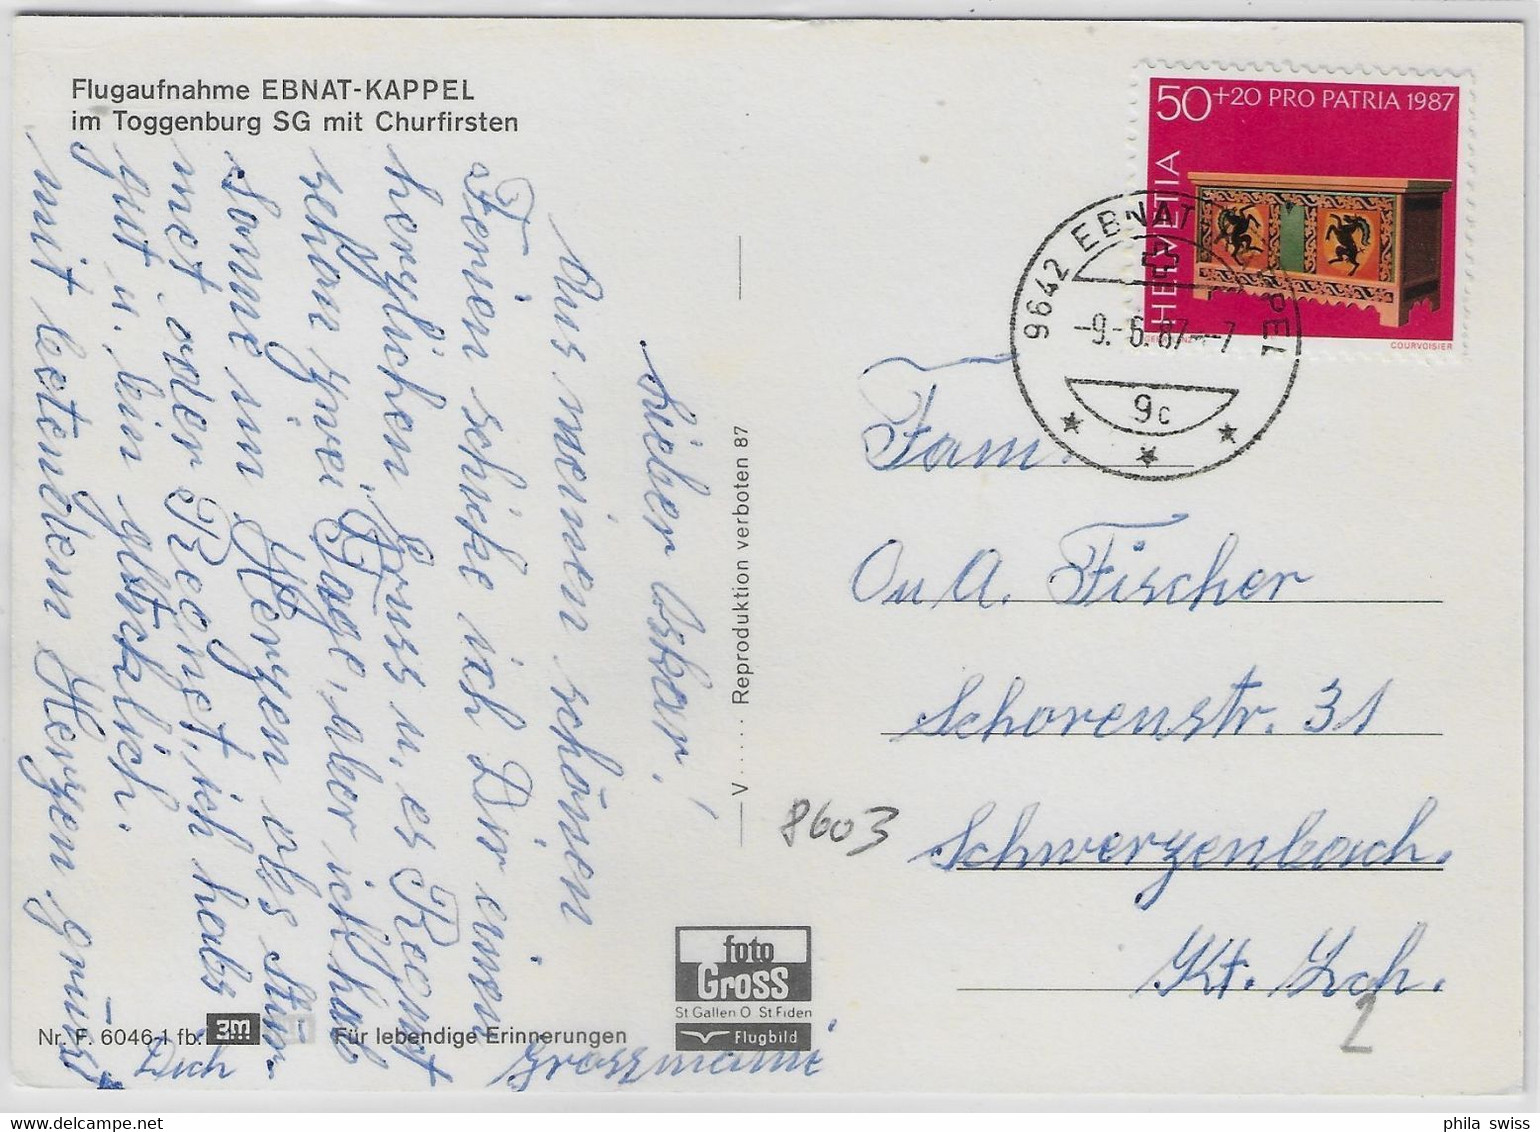 Flugaufnahme EBNAT-KAPPEL
im Toggenburg SG mit Churfirsten
Lieber Oskar!
Aus meinen schönen
Ferien schicke ich Dir einen
herzlichen Gruss u. es Regnet
schon zwei Tage, aber ich hab
Sonne im Herzen obs stür-
met oder Regnet, ich habs
gut u. bin glücklich.
mit betendem Herzen grüsst
Dich Grossmami
Nr. F. 6046-1 fb.
3m
Für lebendige Erinnerungen
V..... Reproduktion verboten 87
foto
Gross
St Gallen O St Fiden
Flugbild
50+20 PRO PATRIA 1987
HELVETIA
COURVOISIER
9642 EBNAT-KAPPEL
-9.-6.87--7
9c
Fam.
O u A. Fischer
Schorenstr. 31
8603
Schwerzenbach.
Kt. Zch.
2
phila swiss